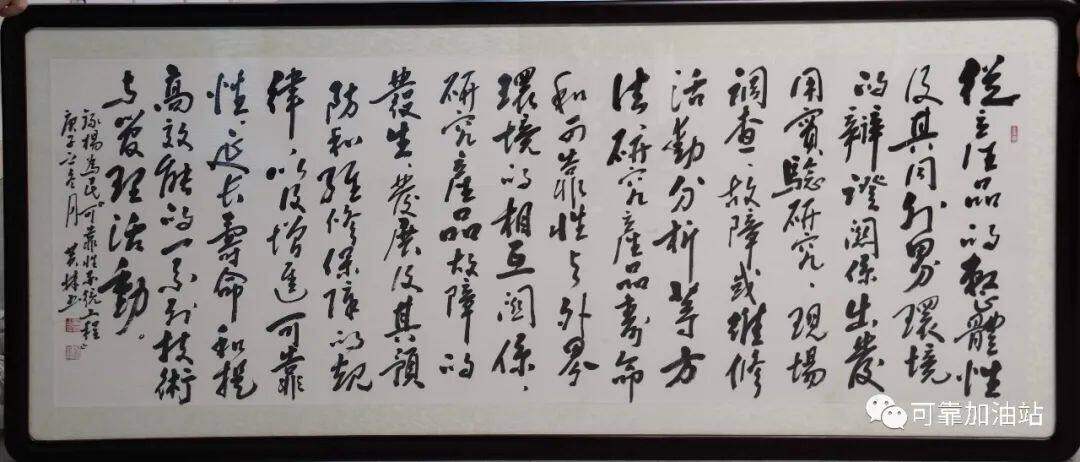 從品的整體性
及其同外界環境
的辯證關係出發
用實驗研究、現場
調查、故障或維修
活動分析等方
法研究產品壽命
和可靠性与外界
環境的相互關係，
研究產品故障的
發生、發展及其預
防和維修保障的規
律，以及增進可靠
性、延長壽命和提
高效能的一系列技術
与管理活動。
錄楊為民可靠性系統工程
庚子月書
可靠加油站